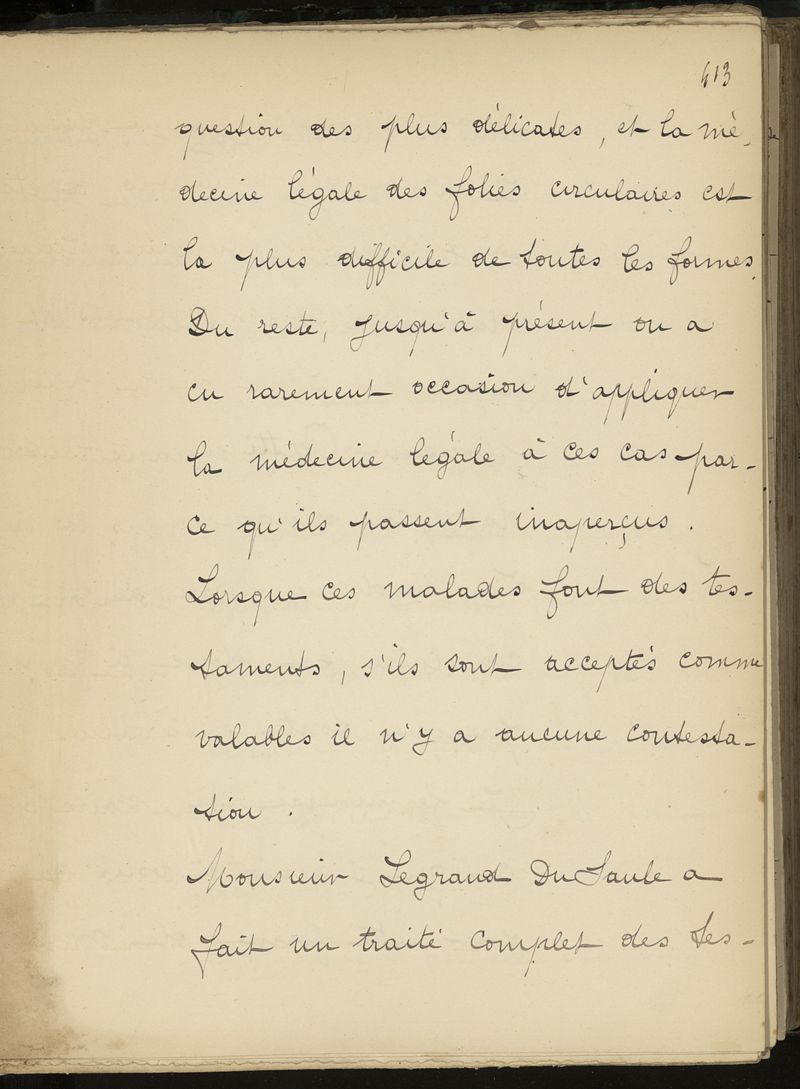 413
question des plus délicates, et la mé-
decine légale des folies circulaires est
la plus difficile de toutes les formes.
Du reste, jusqu'à présent on a
eu rarement occasion d'appliquer
la médecine légale à ces cas par-
ce qu'ils passent inaperçus.
Lorsque ces malades font des tes-
taments, s'ils sont acceptés comme
valables il n'y a aucune contesta-
tion.
Monsieur Legrand Du Saule a
fait un traité complet des tes-